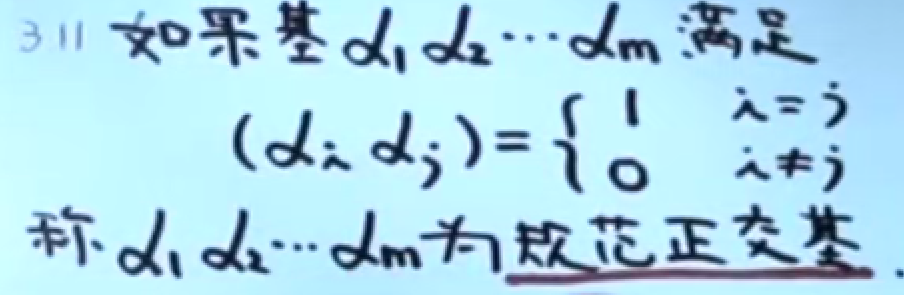 3.11 如果基 α₁ α₂ ⋯ αₘ 满足
(αᵢ αⱼ) = { 1 i = j
0 i ≠ j
称 α₁ α₂ ⋯ αₘ 为规范正交基.